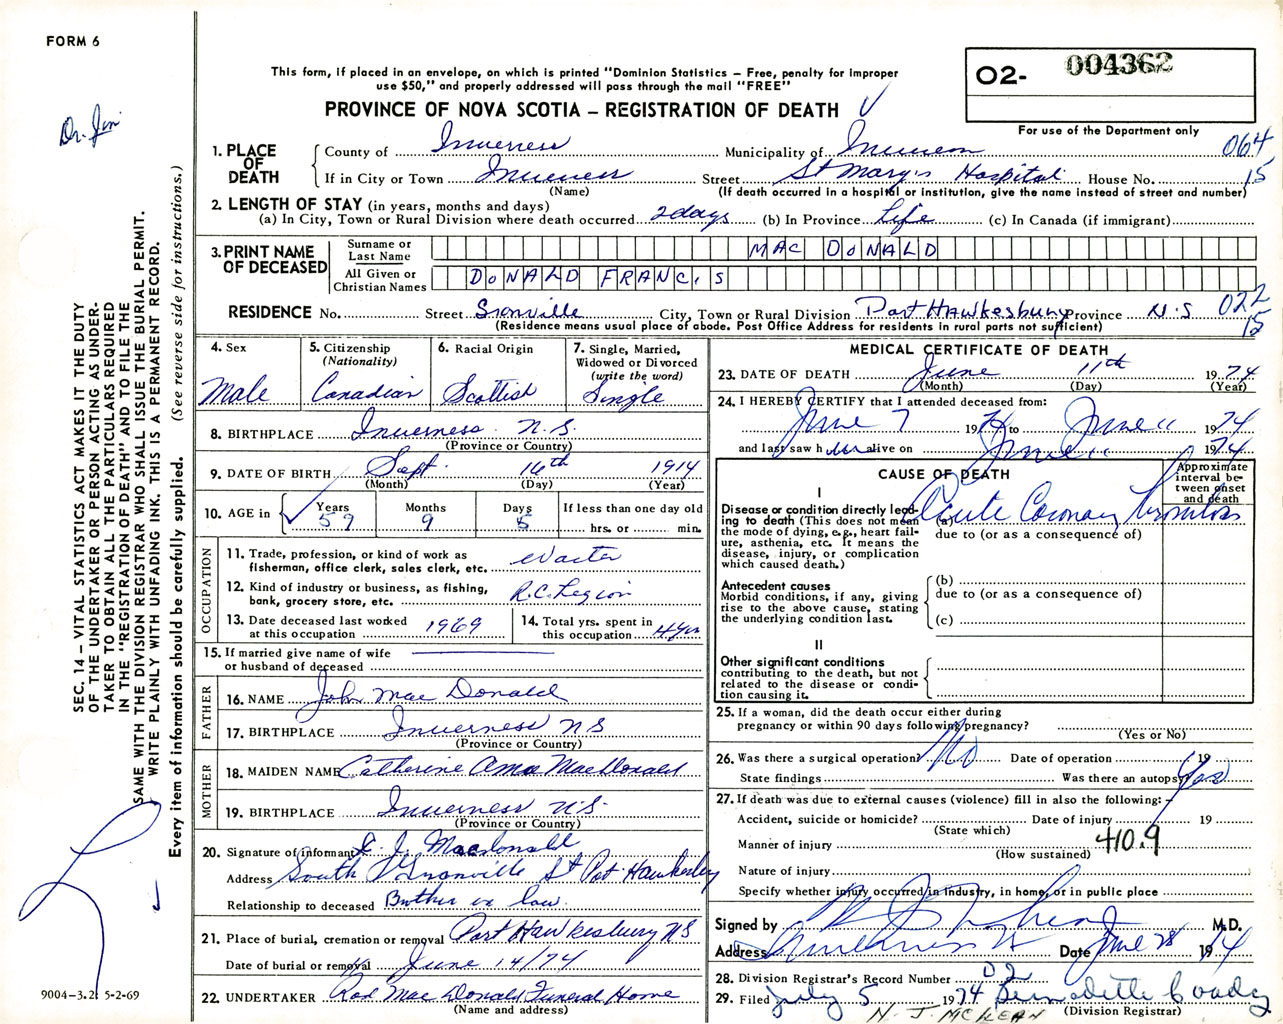 FORM 6
Dr. Jim
SEC. 14 – VITAL STATISTICS ACT MAKES IT THE DUTY
OF THE UNDERTAKER OR PERSON ACTING AS UNDER-
TAKER TO OBTAIN ALL THE PARTICULARS REQUIRED
IN THE "REGISTRATION OF DEATH" AND TO FILE THE
SAME WITH THE DIVISION REGISTRAR WHO SHALL ISSUE THE BURIAL PERMIT.
WRITE PLAINLY WITH UNFADING INK. THIS IS A PERMANENT RECORD.
Every item of information should be carefully supplied. (See reverse side for instructions.)
9004-3.2: 5-2-69
This form, if placed in an envelope, on which is printed "Dominion Statistics – Free, penalty for improper
use $50," and properly addressed will pass through the mail "FREE"
PROVINCE OF NOVA SCOTIA – REGISTRATION OF DEATH
O2- 004362
For use of the Department only
1. PLACE OF DEATH County of Inverness Municipality of Inverness 064
If in City or Town Inverness Street St Mary's Hospital House No. 15
(Name) (If death occurred in a hospital or institution, give the name instead of street and number)
2. LENGTH OF STAY (in years, months and days)
(a) In City, Town or Rural Division where death occurred 2 days (b) In Province Life (c) In Canada (if immigrant)
3. PRINT NAME OF DECEASED Surname or Last Name MAC DONALD
All Given or Christian Names DONALD FRANCIS
RESIDENCE No. Street Granville City, Town or Rural Division Port Hawkesbury Province N.S 022
15
(Residence means usual place of abode. Post Office Address for residents in rural parts not sufficient)
4. Sex Male
5. Citizenship (Nationality) Canadian
6. Racial Origin Scottish
7. Single, Married, Widowed or Divorced (write the word) Single
8. BIRTHPLACE Inverness N.S.
(Province or Country)
9. DATE OF BIRTH Sept. 14th 1914
(Month) (Day) (Year)
10. AGE in Years 59 Months 9 Days 5 If less than one day old
hrs. or min.
OCCUPATION
11. Trade, profession, or kind of work as
fisherman, office clerk, sales clerk, etc. Waiter
12. Kind of industry or business, as fishing,
bank, grocery store, etc. R.C. Legion
13. Date deceased last worked
at this occupation 1969
14. Total yrs. spent in
this occupation 4 yrs
15. If married give name of wife
or husband of deceased
FATHER
16. NAME John Mac Donald
17. BIRTHPLACE Inverness NS
(Province or Country)
MOTHER
18. MAIDEN NAME Catherine Ann MacDonald
19. BIRTHPLACE Inverness N.S.
(Province or Country)
20. Signature of informant J. Macdonald
Address South Granville St Port Hawkesbury
Relationship to deceased Brother in law
21. Place of burial, cremation or removal Port Hawkesbury NS
Date of burial or removal June 14/74
22. UNDERTAKER Rod Mac Donald Funeral Home
(Name and address)
MEDICAL CERTIFICATE OF DEATH
23. DATE OF DEATH June 11th 1974
(Month) (Day) (Year)
24. I HEREBY CERTIFY that I attended deceased from:
June 7 1974 to June 11 1974
and last saw him alive on June 11 1974
CAUSE OF DEATH
Approximate interval between onset and death
I
Disease or condition directly lead-
ing to death (This does not mean
the mode of dying, e.g., heart fail-
ure, asthenia, etc. It means the
disease, injury, or complication
which caused death.)
(a) Acute Coronary Thrombosis
due to (or as a consequence of)
Antecedent causes
Morbid conditions, if any, giving
rise to the above cause, stating
the underlying condition last.
(b)
due to (or as a consequence of)
(c)
II
Other significant conditions
contributing to the death, but not
related to the disease or condi-
tion causing it.
25. If a woman, did the death occur either during
pregnancy or within 90 days following pregnancy?
(Yes or No)
26. Was there a surgical operation? No Date of operation 19
State findings Was there an autopsy? Yes
27. If death was due to external causes (violence) fill in also the following:–
Accident, suicide or homicide? Date of injury 19
(State which)
Manner of injury 410.9
(How sustained)
Nature of injury
Specify whether injury occurred in industry, in home, or in public place
Signed by M.D.
Address Inverness Date June 28 1974
28. Division Registrar's Record Number 02
29. Filed July 5 1974 Bernadette Coady
N. J. MCLEAN (Division Registrar)